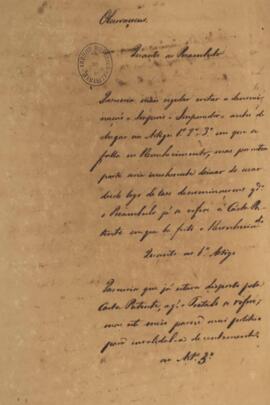 Observaçoens
Quanto ao Preambulo
Parecia mais regular evitar a denomi-
nação d'Imperio e Imperador antes de
chegar ao Artigo 1º 2º 3º em que se
falla no Reconhecimento, mas por outra
parte seria deixar de usar
desde logo de taes denominaçoens qdo
o Preambulo já se refere á Carta Pa-
tente em que he feito o Reconhecimto
Quanto ao 1º Artigo
Parecia que já estava disposto pela
Carta Patente, a q' o Tratado se refere,
mas isto mais parece mais politico
para
ao Artº 3º